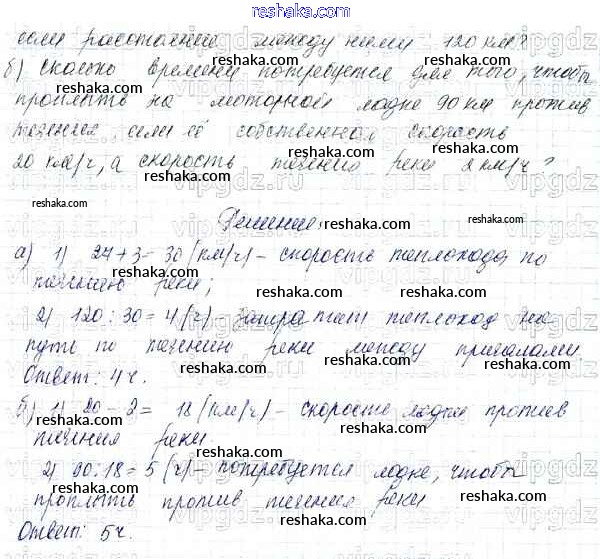 reshaka.com
если расстояние между ними 120 км?
б) Сколько времени потребуется для того, чтобы
проплыть на моторной лодке 90 км против
течения, если её собственная скорость
20 км/ч, а скорость течения реки 2 км/ч?
Решение.
а) 1) 27+3=30 (км/ч) – скорость теплохода по
течению реки;
2) 120:30=4 (ч) – затратит теплоход на
путь по течению реки между причалами.
Ответ: 4ч.
б) 1) 20-2= 18 (км/ч) – скорость лодки против
течения реки.
2) 90:18=5 (ч) – потребуется лодке, чтобы
проплыть против течения реки
Ответ: 5ч.
reshaka.com